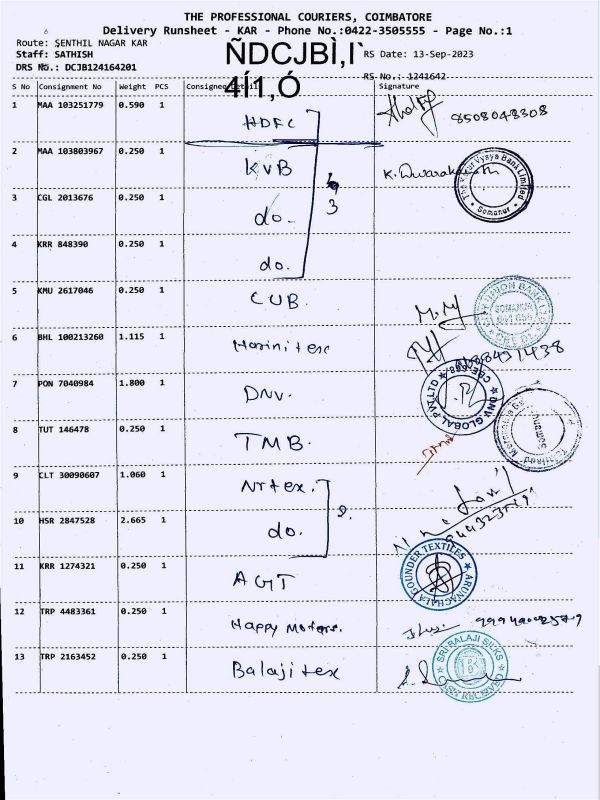 THE PROFESSIONAL COURIERS, COIMBATORE
Delivery Runsheet - KAR - Phone No.:0422-3505555 - Page No.:1
Route: SENTHIL NAGAR KAR
Staff: SATHISH
DRS No.: DCJB124164201
ÑDCJBÌ,I`
4Í1,Ó
RS Date: 13-Sep-2023
RS No.: 1241642
S No Consignment No Weight PCS Consignee Detail Signature
1 MAA 103251779 0.590 1 HDFC 8508048308
2 MAA 103803967 0.250 1 KVB K. Dwarakanath
The Karur Vysya Bank Limited
Somanur
3 CGL 2013676 0.250 1 do. 3
4 KRR 848390 0.250 1 do.
5 KMU 2617046 0.250 1 CUB
CITY UNION BANK LTD
SOMANUR
6 BHL 100213260 1.115 1 Harini tex
7 PON 7040984 1.800 1 DNV.
DNV GLOBAL PVT LTD
8 TUT 146478 0.250 1 TMB.
Somanur
9 CLT 30090607 1.060 1 Nrtex.
10 HSR 2847528 2.665 1 do. 2.
11 KRR 1274321 0.250 1 AGT
ARUNACHALA GOUNDER TEXTILES
12 TRP 4483361 0.250 1 Happy Motors.
13 TRP 2163452 0.250 1 Balaji tex
SRI BALAJI SILKS